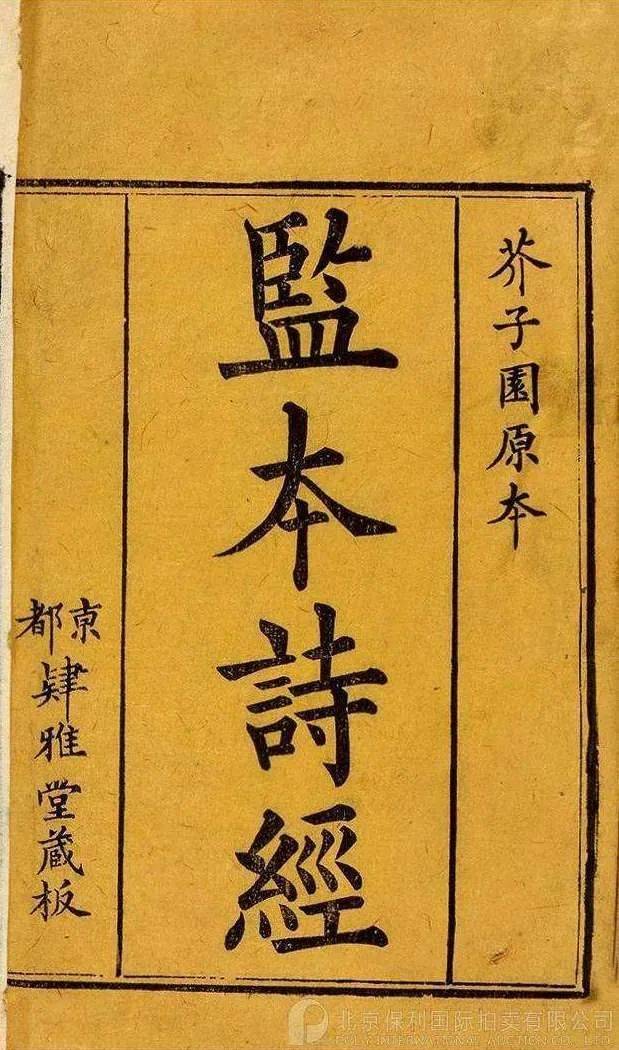 芥子園原本
監本詩經
京都肄雅堂藏板
北京保利国际拍卖有限公司
POLY INTERNATIONAL AUCTION CO., LTD